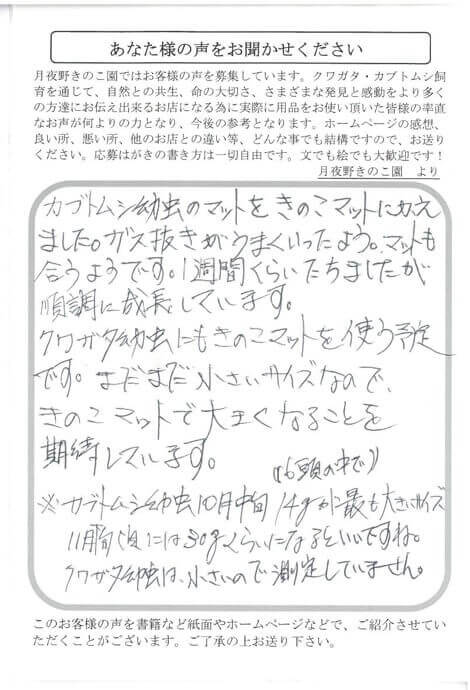 あなた様の声をお聞かせください
月夜野きのこ園ではお客様の声を募集しています。クワガタ・カブトムシ飼
育を通じて、自然との共生、命の大切さ、さまざまな発見と感動をより多く
の方達にお伝え出来るお店になる為に実際に用品をお使い頂いた皆様の率直
なお声が何よりの力となり、今後の参考となります。ホームページの感想、
良い所、悪い所、他のお店との違い等、どんな事でも結構ですので、お送り
ください。応募はがきの書き方は一切自由です。文でも絵でも大歓迎です！
月夜野きのこ園　より
カブトムシ幼虫のマットをきのこマットにかえ
ました。ガス抜きがうまくいったよう。マットも
合うようです。1週間くらいたちましたが
順調に成長しています。
クワガタ幼虫にもきのこマットを使う予定
です。まだまだ小さいサイズなので、
きのこマットで大きくなることを
期待しています。
(16頭の中で)
※カブトムシ幼虫10月中旬 14gが最も大きいサイズ
11月頃には30gくらいになるといいですね。
クワガタ幼虫は、小さいので測定していません。
このお客様の声を書籍など紙面やホームページなどで、ご紹介させてい
ただくことがございます。ご了承の上お送り下さい。